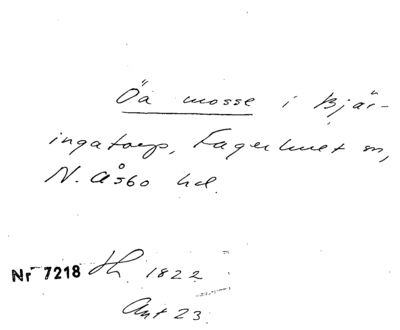 Öå mosse i Bjär-
ingatorp, Fagerhult sn,
N. Åsbo hd.
Nr 7218 Th. 1822
Ant 23.